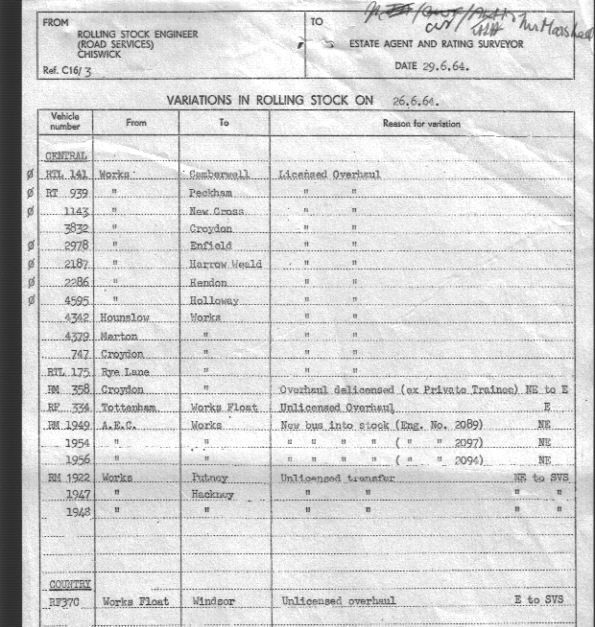 FROM
ROLLING STOCK ENGINEER
(ROAD SERVICES)
CHISWICK
Ref. C16/ 3
TO
Mr Marshall
ESTATE AGENT AND RATING SURVEYOR
DATE 29.6.64.
VARIATIONS IN ROLLING STOCK ON 26.6.64.
Vehicle number From To Reason for variation
CENTRAL
Ø RTL 141 Works Camberwell Licensed Overhaul
Ø RT 939 " Peckham " "
Ø 1143 " New Cross " "
3832 " Croydon " "
Ø 2978 " Enfield " "
Ø 2187 " Harrow Weald " "
Ø 2286 " Hendon " "
Ø 4595 " Holloway " "
4342 Hounslow Works " "
4379 Merton " " "
747 Croydon " " "
RTL 175 Rye Lane " " "
RM 358 Croydon " Overhaul delicensed (ex Private Trainee) NE to E
RF 334 Tottenham Works Float Unlicensed Overhaul E
RM 1949 A.E.C. Works New bus into stock (Eng. No. 2089) NE
1954 " " " " " " ( " " 2097) NE
1956 " " " " " " ( " " 2094) NE
RM 1922 Works Putney Unlicensed transfer NE to SVS
1947 " Hackney " " " "
1948 " " " " " "
COUNTRY
RF370 Works Float Windsor Unlicensed overhaul E to SVS